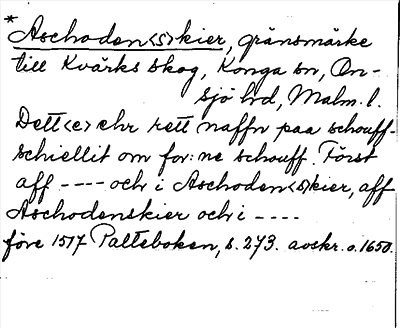 *Aschoden<s>kier, gränsmärke
till Kvärks skog, Konga sn, On-
sjö hd, Malm. l.
Dett<e> ehr rett naffn paa schouff-
schiellit om for:ne schouff. Först
aff ---- och i Aschoden<s>kier, aff
Aschodenskier och i ----
före 1517 Palteboken, s. 273. avskr. o. 1650.